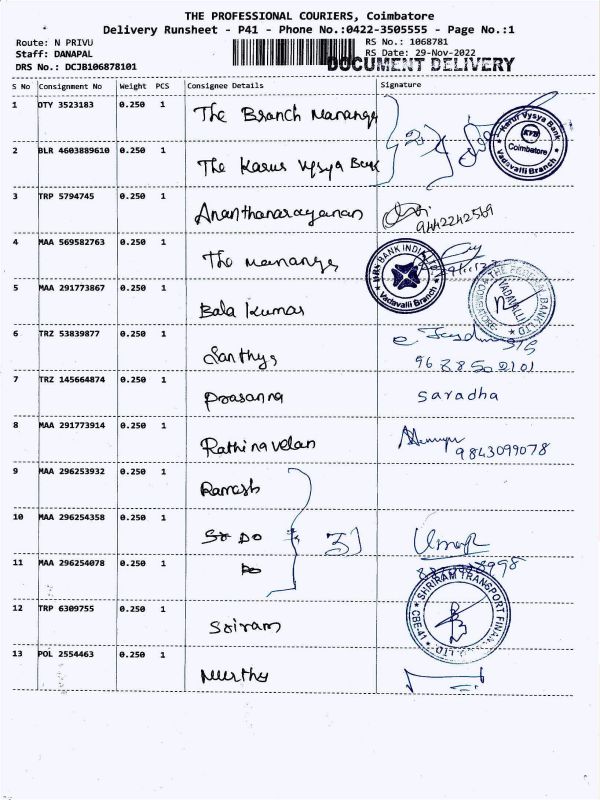 THE PROFESSIONAL COURIERS, Coimbatore
Delivery Runsheet - P41 - Phone No.:0422-3505555 - Page No.:1
Route: N PRIVU
RS No.: 1068781
Staff: DANAPAL
RS Date: 29-Nov-2022
DRS No.: DCJB106878101
DOCUMENT DELIVERY
S No Consignment No Weight PCS Consignee Details Signature
1 DTY 3523183 0.250 1 The Branch Manange
2 BLR 4603889610 0.250 1 The Karur Vysya Bank
Karur Vysya Bank
KVB
Coimbatore
Vadavalli Branch
3 TRP 5794745 0.250 1 Ananthanarayanan
9442242569
4 MAA 569582763 0.250 1 The manange
BANK INDIA LTD
Vadavalli Branch
THE FEDERAL BANK LTD
VADAVALLI
COIMBATORE
5 MAA 291773867 0.250 1 Bala Kumar
6 TRZ 53839877 0.250 1 Santhys
7 TRZ 145664874 0.250 1 Prasanna Saradha
8 MAA 291773914 0.250 1 Rathinavelan
9843099078
9 MAA 296253932 0.250 1 Ramesh
10 MAA 296254358 0.250 1 Do 3
11 MAA 296254078 0.250 1 Do
SHRIRAM TRANSPORT FINANCE
12 TRP 6309755 0.250 1 Sriram
13 POL 2554463 0.250 1 Murthy